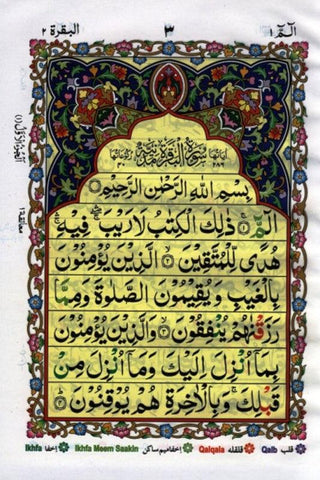 البقرة ٢
٣
الٓمّٓ ١
سُوْرَةُ الْبَقَرَةِ مَدَنِيَّةٌ
بِسْمِ اللهِ الرَّحْمٰنِ الرَّحِيْمِ
الٓمّٓ ۚ ذٰلِكَ الْكِتٰبُ لَا رَيْبَ ۛ فِيْهِ ۛ
هُدًى لِّلْمُتَّقِيْنَ ۙ الَّذِيْنَ يُؤْمِنُوْنَ
بِالْغَيْبِ وَيُقِيْمُوْنَ الصَّلٰوةَ وَمِمَّا
رَزَقْنٰهُمْ يُنْفِقُوْنَ ۙ وَالَّذِيْنَ يُؤْمِنُوْنَ
بِمَآ اُنْزِلَ اِلَيْكَ وَمَآ اُنْزِلَ مِنْ
قَبْلِكَ ۚ وَبِالْاٰخِرَةِ هُمْ يُوْقِنُوْنَ
معانقة ١
قلب Qalb قلقله Qalqala اخفامیم ساکن Ikhfa Meem Saakin اخفا Ikhfa